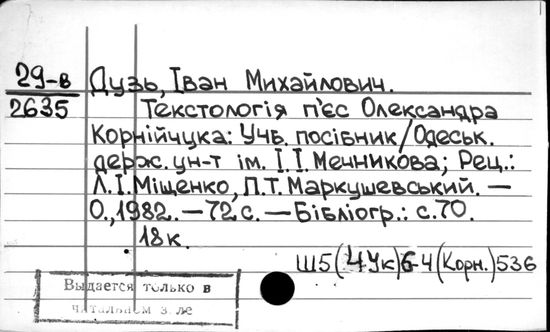 29-в
2635
Дузь, Іван Михайлович.
Текстологія п'єс Олександра
Корнійчука: Учб. посібник/Одеськ.
держ. ун-т ім. І.І.Мечникова; Рец.:
Л.І.Міщенко, П.Т.Маркушевський. —
О., 1982. — 72 с. — Бібліогр.: с.70.
18 к.
Ш5(4Ук)6-4(Корн.)536
Выдается только в
читальном зале